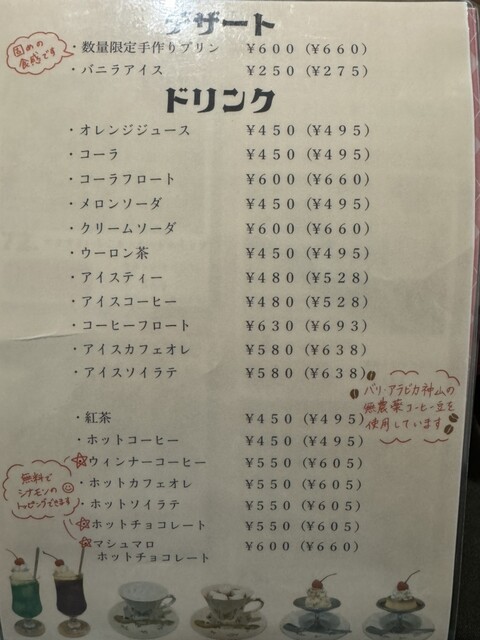 デザート
固めの
食感です
・数量限定手作りプリン ¥600(¥660)
・バニラアイス ¥250(¥275)
ドリンク
・オレンジジュース ¥450(¥495)
・コーラ ¥450(¥495)
・コーラフロート ¥600(¥660)
・メロンソーダ ¥450(¥495)
・クリームソーダ ¥600(¥660)
・ウーロン茶 ¥450(¥495)
・アイスティー ¥480(¥528)
・アイスコーヒー ¥480(¥528)
・コーヒーフロート ¥630(¥693)
・アイスカフェオレ ¥580(¥638)
・アイスソイラテ ¥580(¥638)
バリ・アラビカ神山の
無農薬コーヒー豆を
使用しています
・紅茶 ¥450(¥495)
・ホットコーヒー ¥450(¥495)
・ウィンナーコーヒー ¥550(¥605)
・ホットカフェオレ ¥550(¥605)
・ホットソイラテ ¥550(¥605)
・ホットチョコレート ¥550(¥605)
・マシュマロ ¥600(¥660)
ホットチョコレート
無料で
シナモンの
トッピングできます